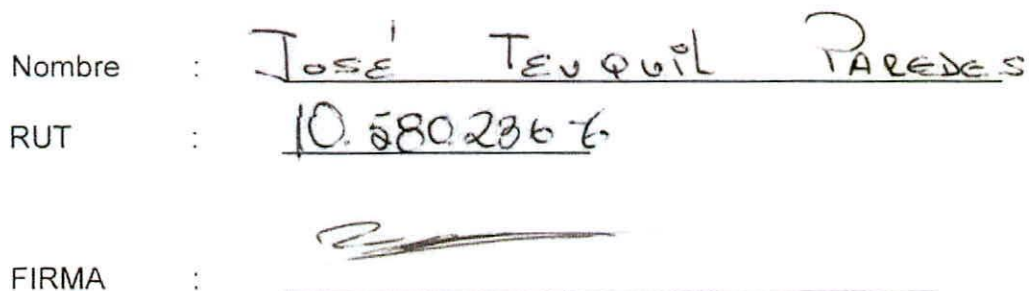 Nombre : José Teuquil Paredes
RUT : 10.580.236
FIRMA :